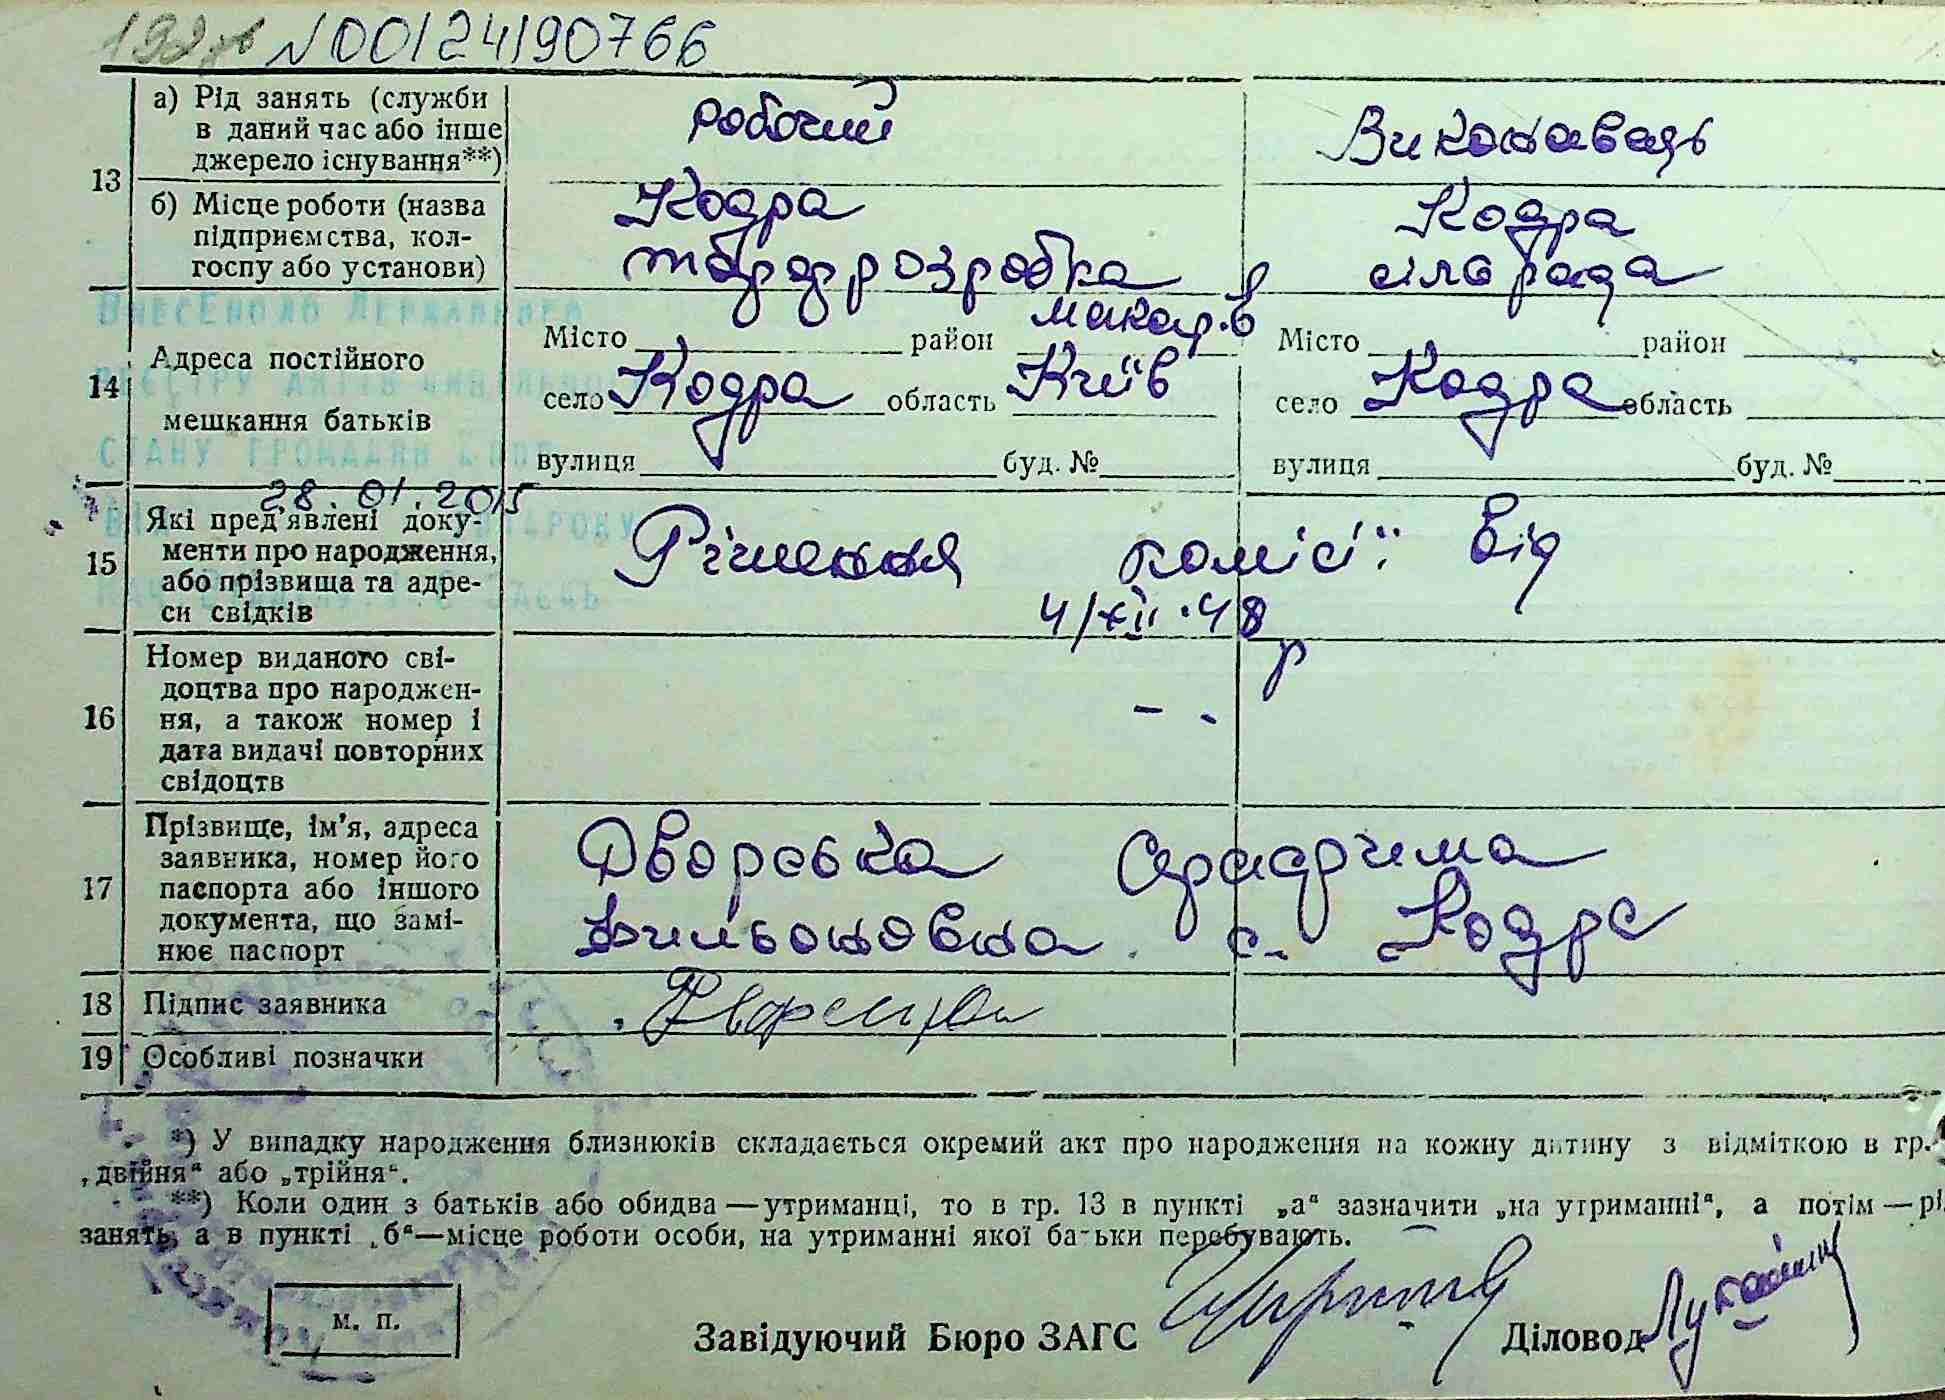 N00124190766
13
а) Рід занять (служби в даний час або інше джерело існування**)
робочий
Виконавець
б) Місце роботи (назва підприємства, колгоспу або установи)
Кодра
Кодра
сілорада
14
Адреса постійного мешкання батьків
Місто район макар.в
село Кодра область Київ
вулиця буд. №
Місто район
село Кодра область
вулиця буд. №
Внесено до Державного
реєстру актів цивільного
стану громадян
28.01.2015
15
Які пред'явлені документи про народження, або прізвища та адреси свідків
Рішення комісії від
4/XII.48
р
16
Номер виданого свідоцтва про народження, а також номер і дата видачі повторних свідоцтв
- -
17
Прізвище, ім'я, адреса заявника, номер його паспорта або іншого документа, що замінює паспорт
Дворська
с. Кодра
18
Підпис заявника
19
Особливі позначки
*) У випадку народження близнюків складається окремий акт про народження на кожну дитину з відміткою в гр.
„двійня“ або „трійня“.
**) Коли один з батьків або обидва — утриманці, то в гр. 13 в пункті „а“ зазначити „на утриманні“, а потім — рі
занять, а в пункті „б“—місце роботи особи, на утриманні якої батьки перебувають.
м. п.
Завідуючий Бюро ЗАГС
Діловод